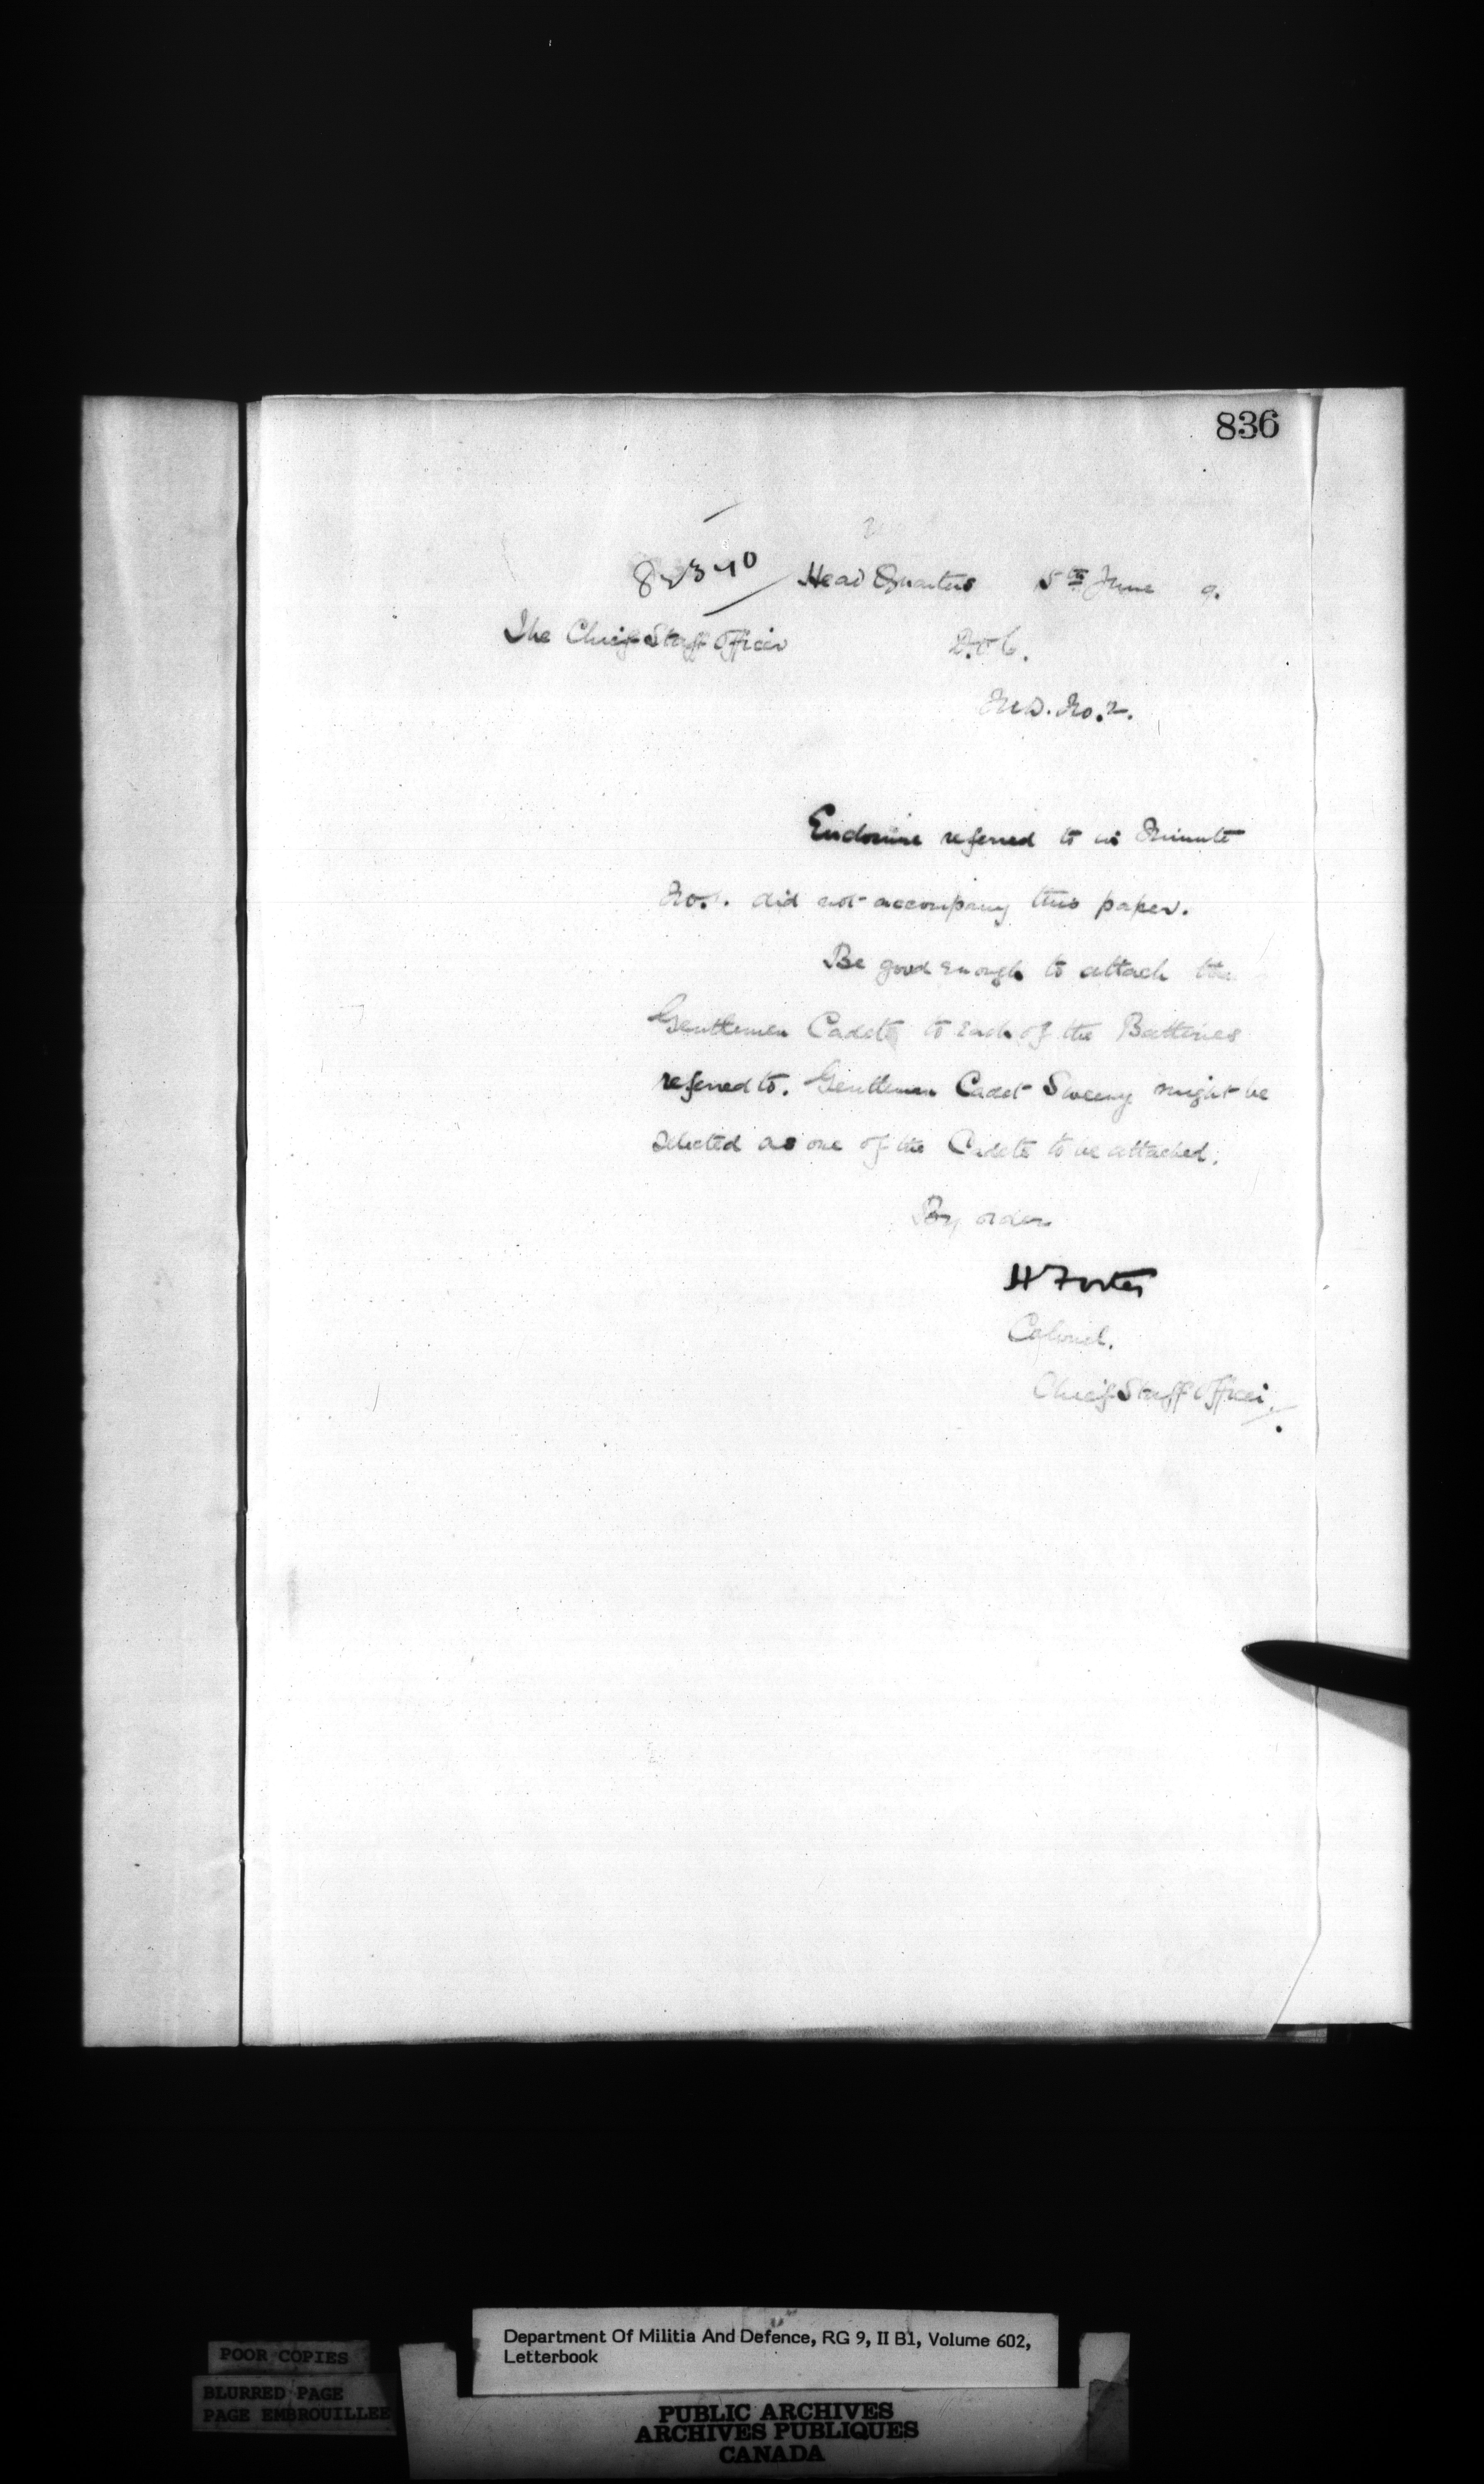 836
82340 Head Quarters 5th June 9.
The Chief Staff Officer
D.O.C.
M.D. No. 2.
Enclosure referred to in Minute
No. 1. did not accompany this paper.
Be good enough to attach two
Gentlemen Cadets to each of the Batteries
referred to. Gentleman Cadet Sweeny might be
selected as one of the Cadets to be attached.
By order
H Foster
Colonel.
Chief Staff Officer.
Department Of Militia And Defence, RG 9, II B1, Volume 602,
Letterbook
POOR COPIES
BLURRED PAGE
PAGE EMBROUILLEE
PUBLIC ARCHIVES
ARCHIVES PUBLIQUES
CANADA